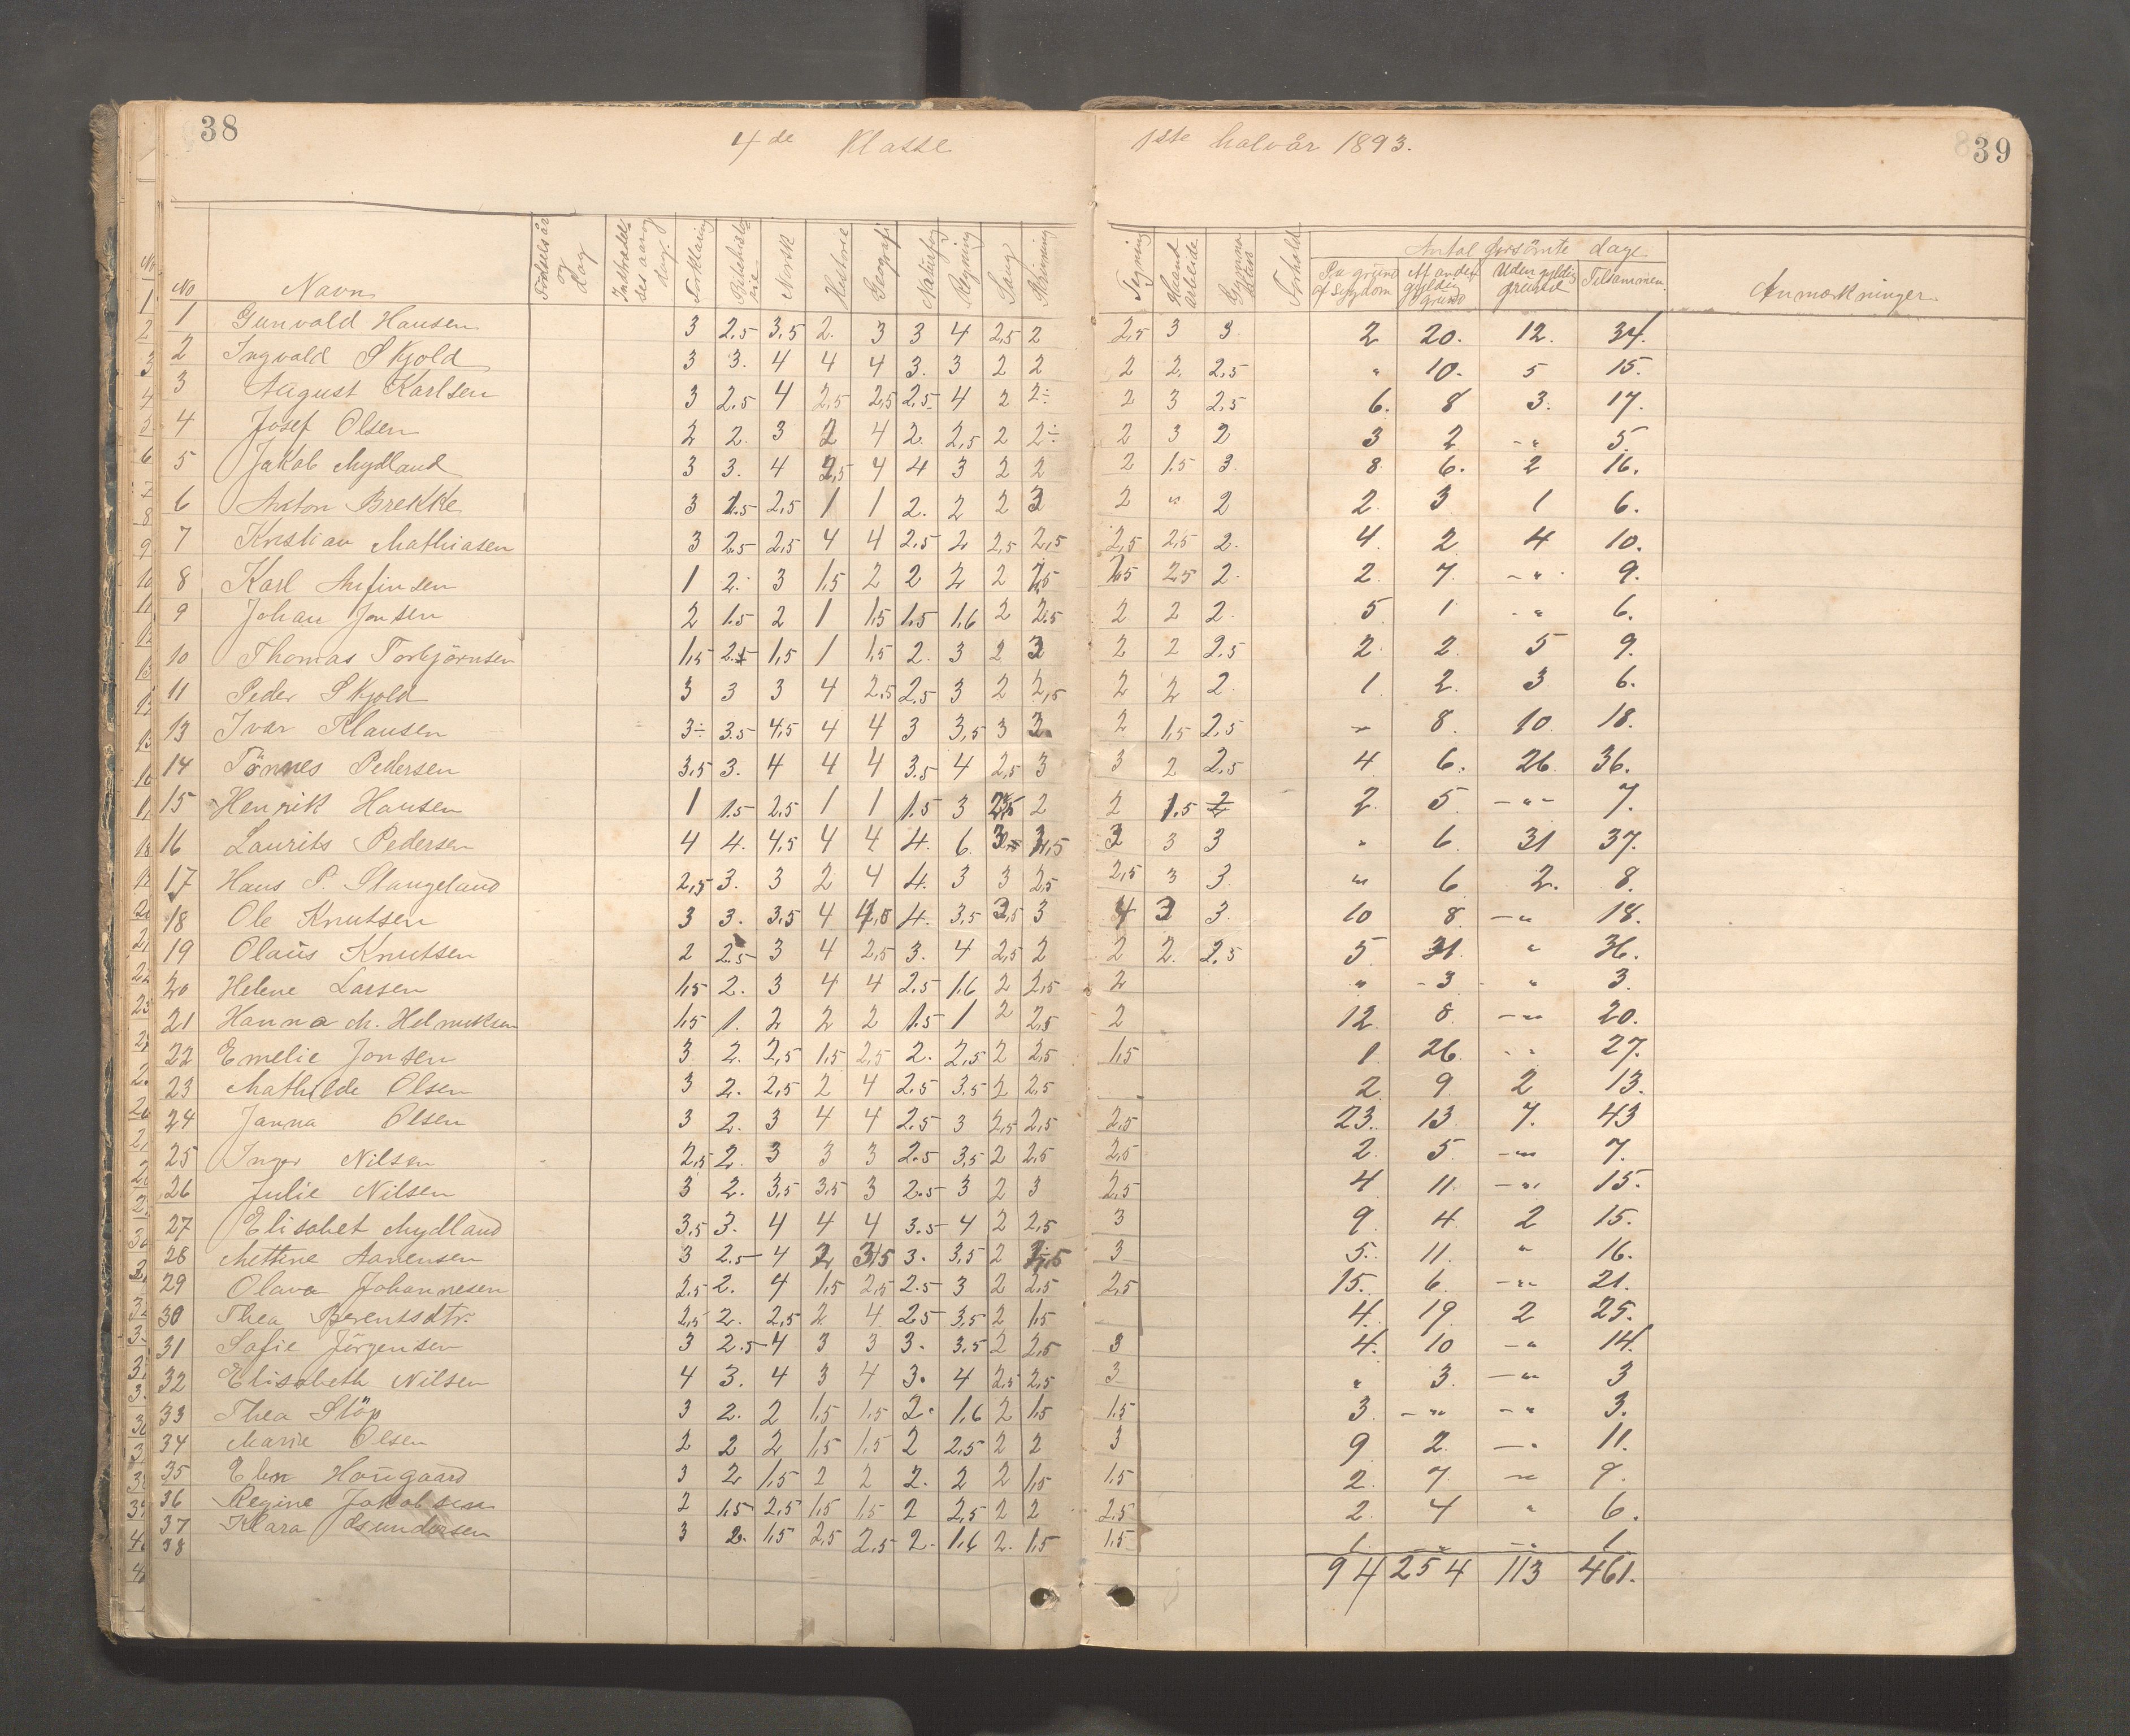 38
4de Klasse
1ste halvår 1893.
39
No Navn Fødselsår og dag Indtrædelses aar og dag. Forklaring Bibelhistorie Norsk Historie Geografi Naturfag Regning Sang Skrivning Tegning Haand arbeide Gymnastik Forhold Antal forsömte dage Anmærkninger
På grund af Sygdom Af anden gyldig grund Uden gyldig grund Tilsammen.
1 Gunvald Hansen 3 2,5 3,5 2. 3 3 4 2,5 2 2,5 3 3. 2 20. 12. 34.
2 Ingvald Skjold 3 3. 4 4 4 3. 3 2 2 2 2. 2,5 " 10. 5 15.
3 August Karlsen 3 2.5 4 2,5 2,5 2,5 4 2 2÷ 2 3 2,5 6. 8 3. 17.
4 Josef Olsen 2 2. 3 2 4 2. 2,5 2 2÷ 2 3 2 3 2 -" 5.
5 Jakob Mydland 3 3. 4 2,5 4 4 3 2 2 2 1.5 3. 8 6. 2 16.
6 Anton Brekke 3 1.5 2,5 1 1 2. 2 2 3 2 " 2 2. 3 1 6.
7 Kristian Mathiasen 3 2.5 2,5 4 4 2.5 2 2,5 2,5 2,5 2,5 2. 4. 2 4 10.
8 Karl Anfinsen 1 2. 3 1,5 2 2 2 2 2,5 2,5 2,5 2. 2. 7. -"- 9.
9 Johan Jonsen 2 1.5 2 1 1,5 1.5 1,6 2 2.5 2 2 2. 5 1 -" 6.
10 Thomas Torbjörnsen 1,5 2.5 1,5 1 1,5 2. 3 2 3 2 2 2,5 2. 2. 5 9.
11 Peder Skjold 3 3 3 4 2.5 2.5 3 2 2,5 2 2 2. 1. 2. 3 6.
13 Ivar Klausen 3÷ 3.5 4,5 4 4 3 3,5 3 3. 2 1,5 2,5 " 8. 10 18.
14 Tönnes Pedersen 3,5 3. 4 4 4 3.5 4 2,5 3 3 2 2,5 4 6. 26. 36.
15 Henrik Hansen 1 1.5 2,5 1 1 1.5 3 2,5 2 2 1.5 2 2. 5 -"- 7.
16 Laurits Pedersen 4 4. 4,5 4 4 4. 6. 3 3 3 " 6. 31 37.
17 Hans P. Slangeland 2,5 3. 3 2 4 4. 3 3 2,5 2,5 3 3. " 6 2. 8.
18 Ole Knutsen 3 3. 3,5 4 4. 3,5 3 4 3 3. 10 8 -" 18.
19 Olaüs Knutsen 2 2.5 3 4 2,5 3. 4 2,5 2 2 2. 2,5 5 31. " 36.
20 Helene Larsen 1,5 2. 3 4 4 2.5 1,6 2 2,5 2 " 3 " 3.
21 Hanna M. Helmiksen 1,5 1. 2 2 2 1.5 1 2 2,5 2 12. 8. -" 20.
22 Emelie Jonsen 3 2. 2,5 1,5 2,5 2. 2,5 2 2,5 1,5 1. 26. " 27.
23 Mathilde Olsen 3 2. 2,5 2 4 2.5 3.5 2 2,5 2 9. 2 13.
24 Janna Olsen 3 2. 3 4 4 2.5 3 2,5 2,5 2,5 23. 13. 7. 43
25 Inger Nilsen 2,5 2. 3 3 3 2.5 3,5 2 2.5 2,5 2. 5. -" 7.
26 Julie Nilsen 3 2. 3,5 3,5 3 2.5 3 2 3 2,5 4 11. -" 15.
27 Elisabet Mydland 3,5 3. 4 4 4 3.5 4 2 2,5 3 9. 4. 2 15.
28 Mettine Aanensen 3 2.5 4 2 3,5 3. 3,5 2 3 5. 11. " 16.
29 Olava Johannesen 2.5 2. 4 1,5 2,5 2.5 3 2 2,5 2,5 15. 6. -" 21.
30 Thea Berentsdtr. 2,5 2. 2,5 2 4 2.5 3,5 2 1,5 4. 19. 2 25.
31 Sofie Jörgensen 3 2.5 4 3 3 3. 3.5 2 2,5 3 4. 10 -" 14.
32 Elisabeth Nilsen 4 3. 4 3 4 3. 4 2,5 2,5 3 " 3. -" 3
33 Thea Slöp 3 2. 2 1,5 1,5 2. 1,6 2 1,5 1.5 3. -" -" 3.
34 Marie Olsen 2 2 2 1,5 1,5 2 2,5 2 2 3 9 2. -" 11.
35 Elen Haügaard 3 2 1,5 2 2 2. 2 2 1,5 1.5 2. 7. " 9.
36 Regine Jakobsen 2 1.5 2,5 1,5 1,5 2 2,5 2 2 2,5 2. 4 " 6.
37 Klara Asmundersen 3 2. 1,5 2,5 2.5 2. 1,6 2. 1,5 1,5 1. " -" 1.
38
94 254 113 461.